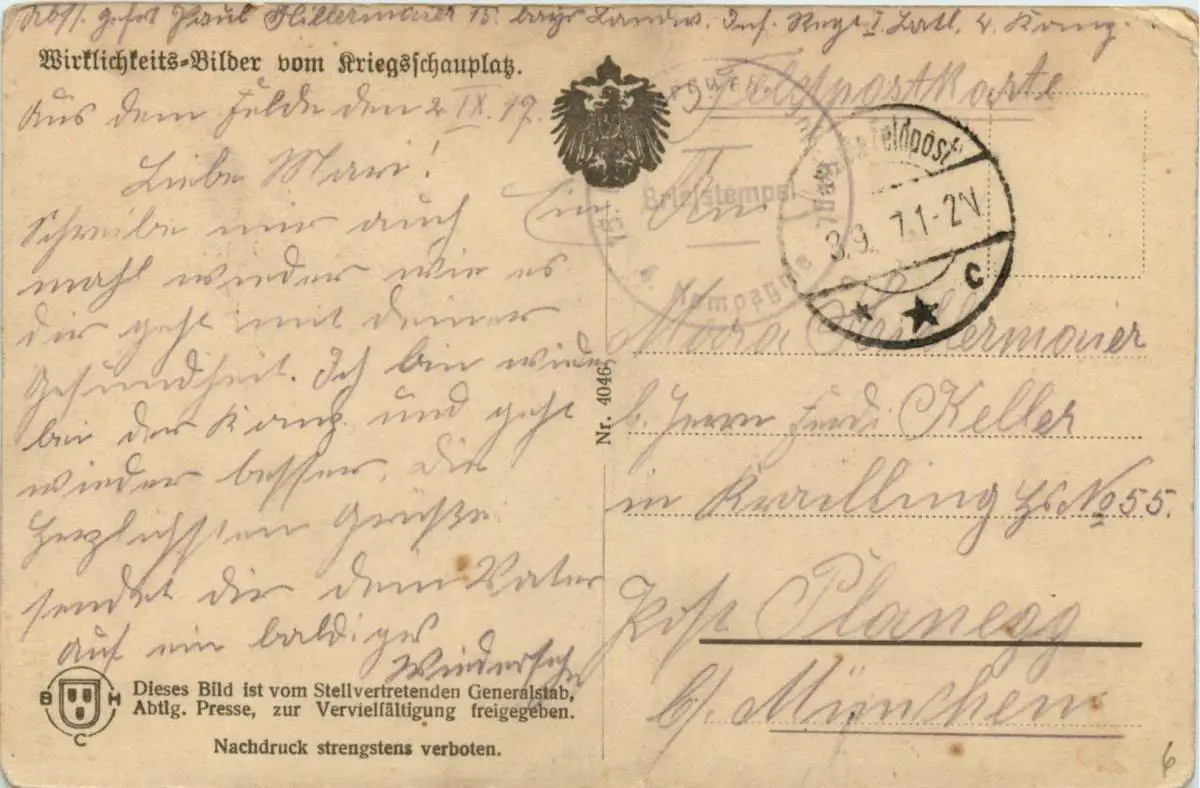 Abs. Gefrt Paul Hillermaier 15. bayr Landw. Inf. Regt I. Batl. 2. Komp.
Wirklichkeits-Bilder vom Kriegsschauplatz.
Aus dem Felde den 2 IX. 17.
Liebe Mari!
Schreibe mir auch
mahl wieder wie es
dir geht mit deiner
Gesundheit. Ich bin wieder
bei der Komp. und geht
wieder besser. Die
Herzlichsten Grüße
sendet dir dein Vater
Auf ein baldiges
Wiedersehn
BHC
Dieses Bild ist vom Stellvertretenden Generalstab,
Abtlg. Presse, zur Vervielfältigung freigegeben.
Nachdruck strengstens verboten.
Nr. 4046.
Feldpostkarte
Briefstempel
Kompagnie
Feldpost
3.9. 7. 1-2N
c
An
Hillermaier
b. Herrn Ferdi Keller
in Krailling Hs No 55.
Post Planegg
b/. München
6